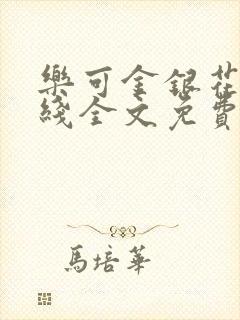 樂可金銀花
綫全文免費
馬培華